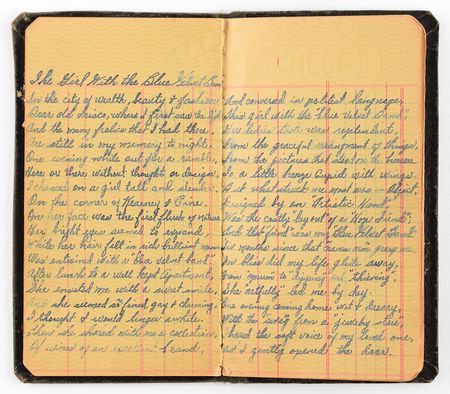 The Girl With the Blue Velvet Band
In the city of wealth, beauty & fashion
Dear old Frisco, where I first saw the light
And the many frolics that I had there,
Are still in my memory to night.
One evening while out for a ramble,
Here or there without thought or design,
I chanced on a girl tall and slender
On the corner of Kearney & Pine.
On her face was the first flush of nature
Her bright eyes seemed to expand,
While her hair fell in rich brilliant
Was entwined with a "blue velvet band".
After lunch to a well kept apartment,
She invited me with a sweet smile,
And she seemed so fined, gay & charming
I thought I would linger awhile
Then she shared with me a collection,
Of wines of an excellent brand,
And conversed in politest language,
This girl with the "Blue Velvet Band";
Her taste was resplendent,
From the graceful arrangment of things.
From the pictures that stood on the bureau
To a little bronze Cupid with wings.
But what struck me most was an object,
Designed by an "Artistic Hand",
Was the costly "lay out of a "Hop Fiend",
And that "fiend" was my "Blue Velvet Band"
months since that
bliss did my life glide away,
From to and "thieving",
She "artfully" led me by day.
One evening coming home wet & dreary,
With the "swag" from a jewelry store,
I heard the soft voice of my loved one,
As I gently opened the door.